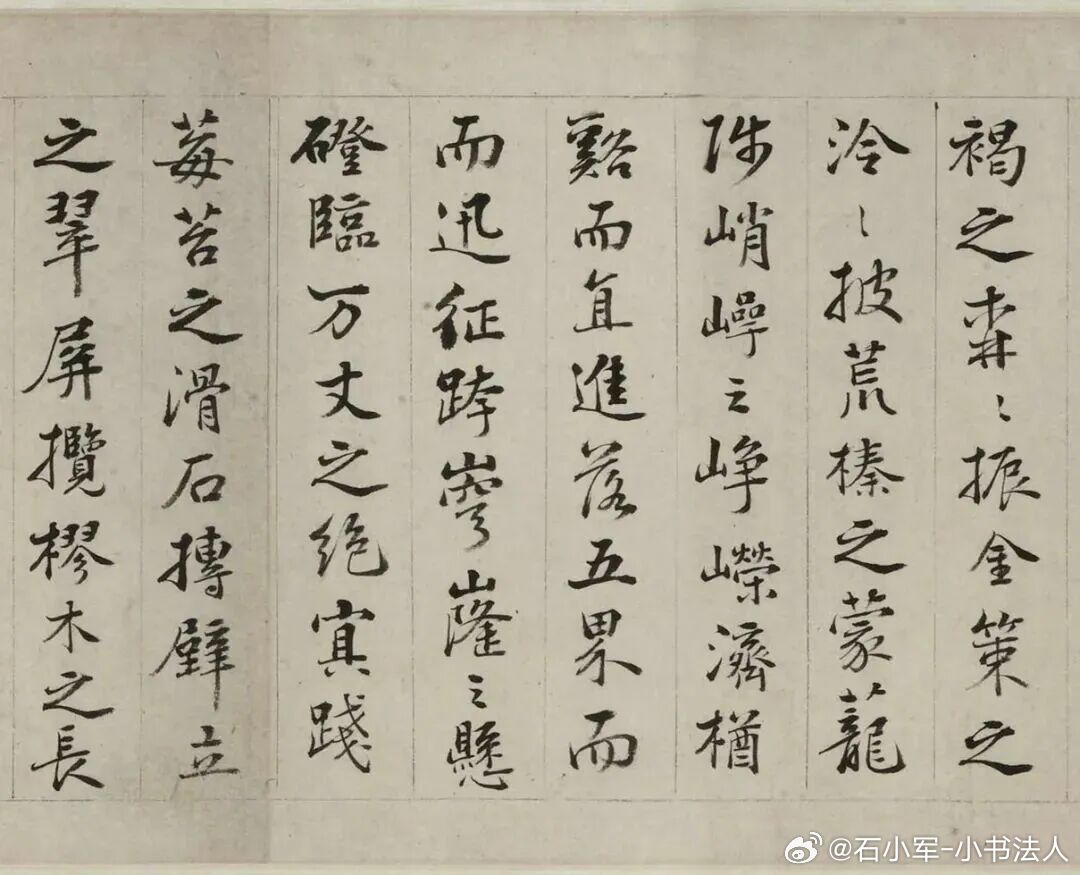 褐之森〻振金策之
泠〻披荒榛之蒙蘢
陟峭崿之峥嶸濟楢
谿而直進落五界而
而迅征跨穹嶐之懸
磴臨万丈之絶冥踐
莓苔之滑石搏壁立
之翠屏攬樛木之長
@石小军-小书法人